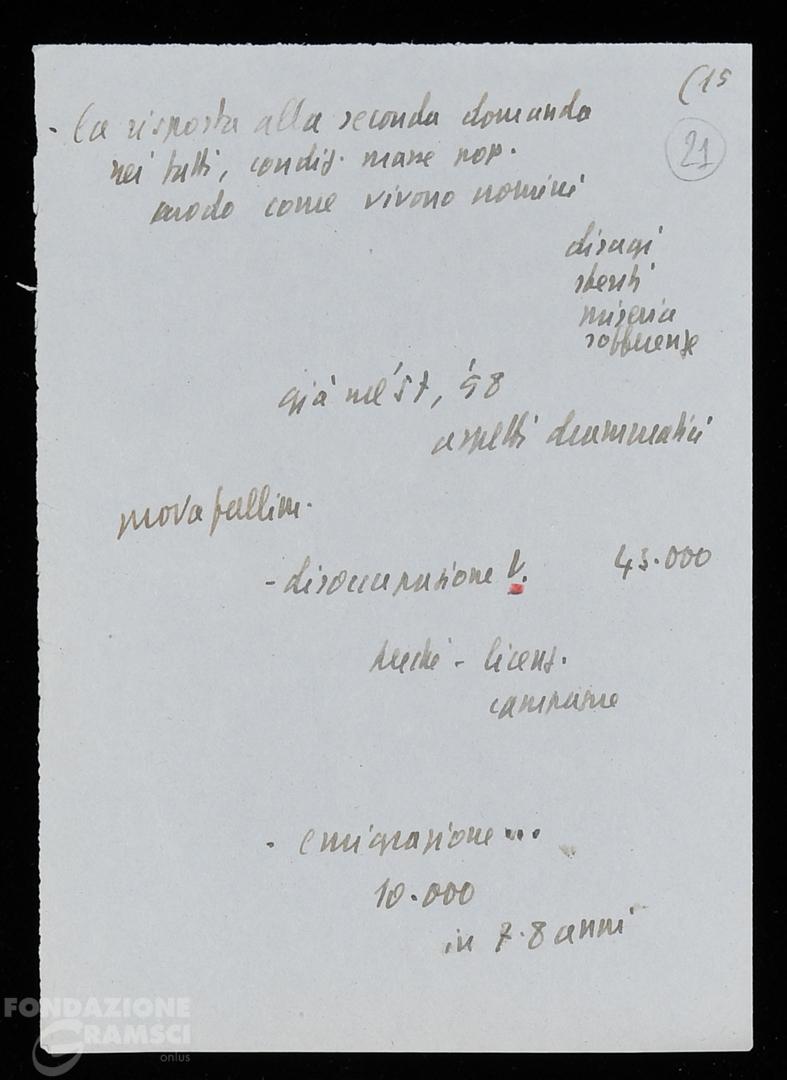 (15
21
- La risposta alla seconda domanda
nei fatti, condiz. masse pop.
modo come vivono uomini
disagi
stenti
miseria
sofferenze
già nel '57, '58
aspetti drammatici
prova fallim.
- disoccupazione V. 43.000
licenz.
campagne
- emigrazione...
10.000
in 7-8 anni
FONDAZIONE
GRAMSCI
onlus